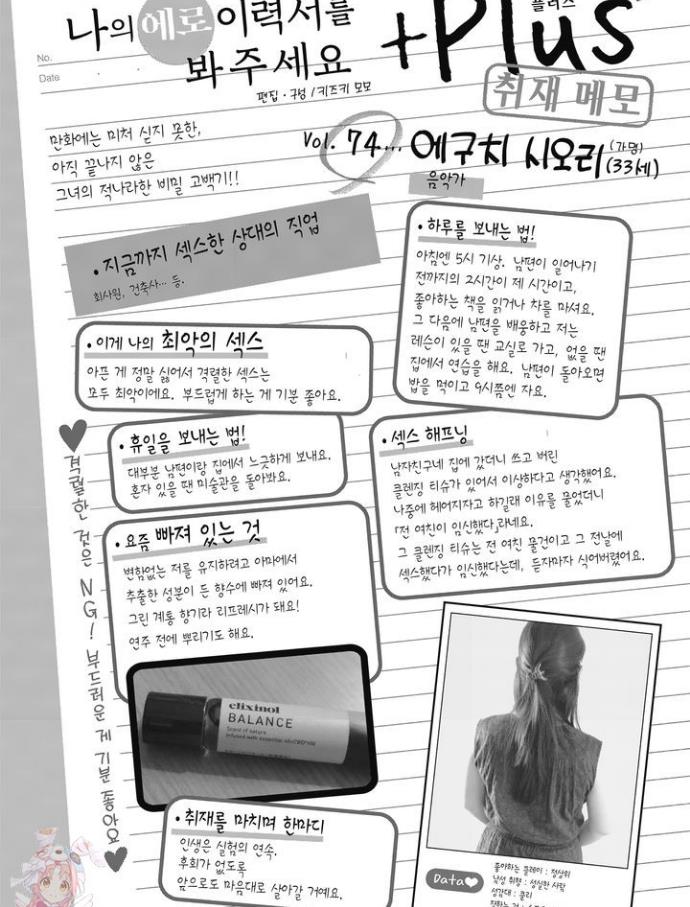 나의 에로 이력서를
봐주세요
+Plus
플러스
취재 메모
No.
Date
편집·구성/키즈키 모모
만화에는 미처 싣지 못한,
아직 끝나지 않은
그녀의 적나라한 비밀 고백기!!
Vol. 74... 에구치 시오리 (가명) (33세)
음악가
•지금까지 섹스한 상대의 직업
회사원, 건축사... 등.
•하루를 보내는 법!
아침엔 5시 기상. 남편이 일어나기
전까지의 2시간이 제 시간이고,
좋아하는 책을 읽거나 차를 마셔요.
그 다음에 남편을 배웅하고 저는
레슨이 있을 땐 교실로 가고, 없을 땐
집에서 연습을 해요. 남편이 돌아오면
밥을 먹이고 9시쯤엔 자요.
•이게 나의 최악의 섹스
아픈 게 정말 싫어서 격렬한 섹스는
모두 최악이에요. 부드럽게 하는 게 기분 좋아요.
•휴일을 보내는 법!
대부분 남편이랑 집에서 느긋하게 보내요.
혼자 있을 땐 미술관을 돌아봐요.
•섹스 해프닝
남자친구네 집에 갔더니 쓰고 버린
클렌징 티슈가 있어서 이상하다고 생각했어요.
나중에 헤어지자고 하길래 이유를 물었더니
「전 여친이 임신했다」라네요.
그 클렌징 티슈는 전 여친 물건이고 그 전날에
섹스했다가 임신했다는데, 듣자마자 식어버렸어요.
•요즘 빠져 있는 것
변함없는 저를 유지하려고 아마에서
추출한 성분이 든 향수에 빠져 있어요.
그린 계통 향기라 리프레시가 돼요!
연주 전에 뿌리기도 해요.
♥격렬한 것은 NG! 부드러운 게 기분 좋아요♥
elixinol
BALANCE
Scent of nature
•취재를 마치며 한마디
인생은 실험의 연속,
후회가 없도록
앞으로도 마음대로 살아갈 거예요.
Data♥
좋아하는 플레이 : 정상위
남성 취향 : 성실한 사람
성감대 : 클리